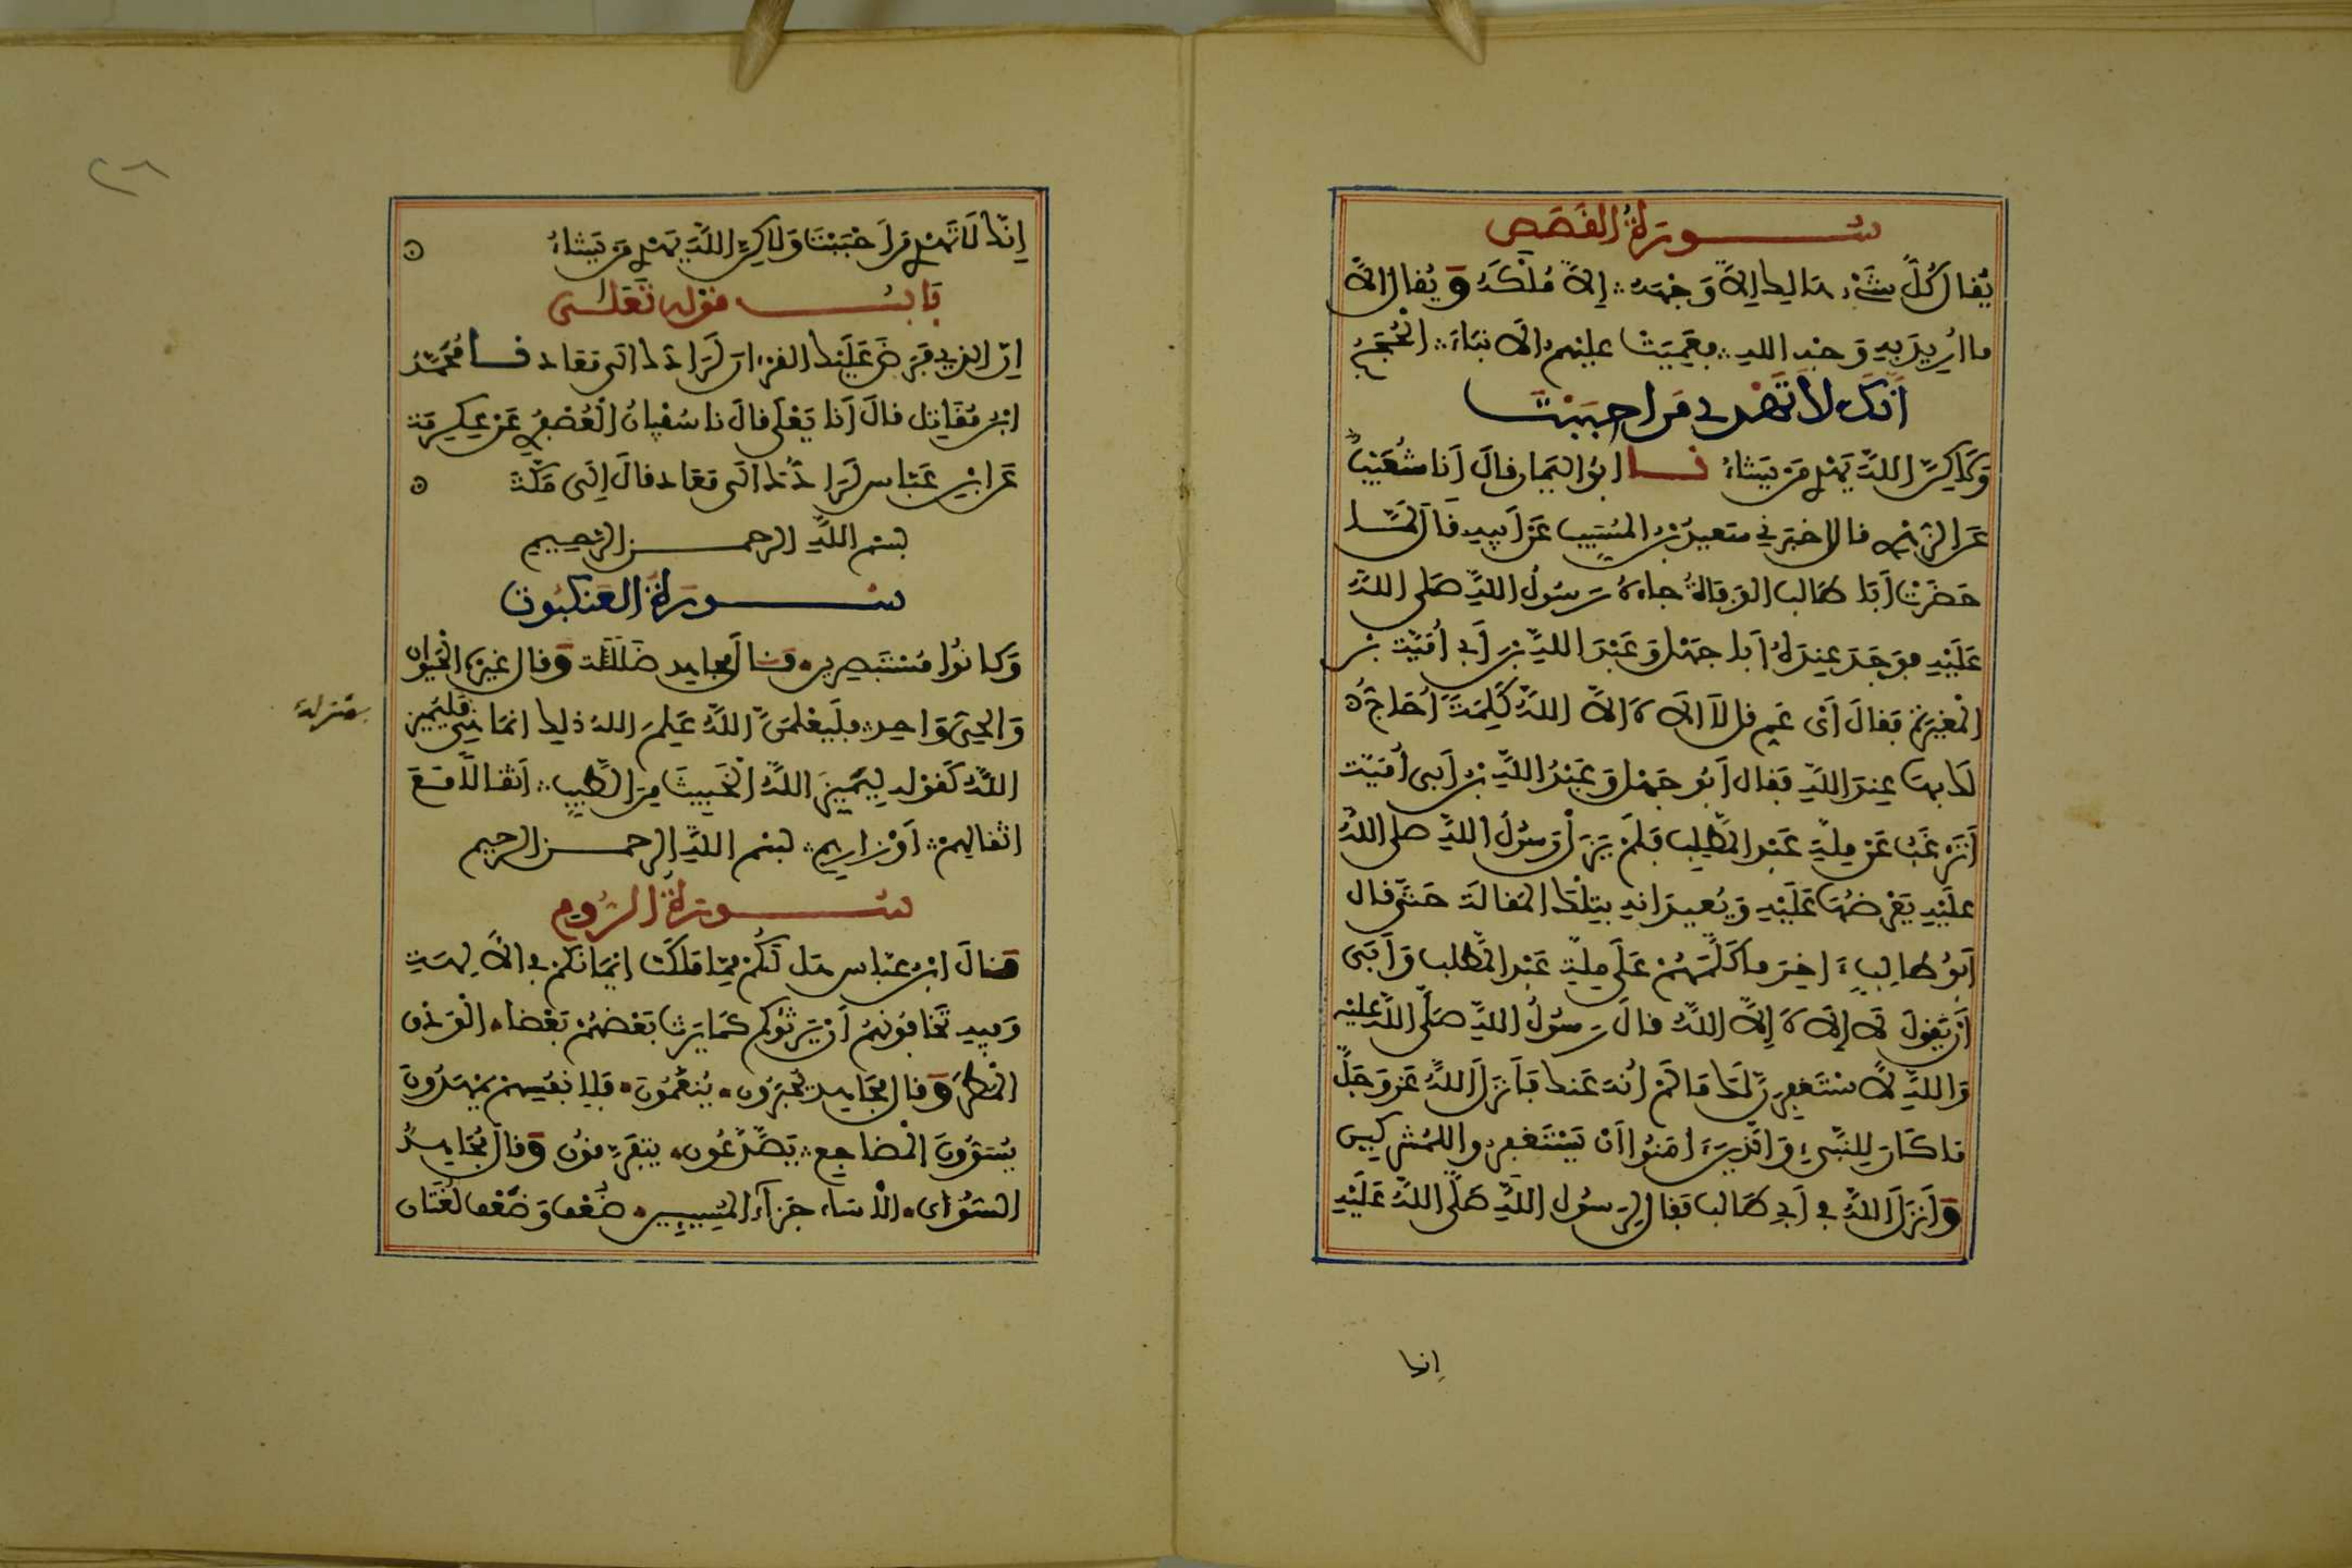 سورة القصص
يُقال كُلّ شَيْء هالك إلاّ وَجْهَهُ إلاّ مُلْكَهُ وَيُقال الاّ
ما اريد بِهِ وَجْه الله فعَمِيَتْ عليهم الانباءُ الْحُجَجُ
انّك لا تهدي من احببت
وَلَاكِنَّ اللَّهَ يَهْدِي مَن يَشاءُ نا ابو اليمان قالَ أنا شُعَيْبٌ
عَن الزهري قال اخبرني سَعيدُ بْنُ المُسَيّب عَنْ أبيهِ قَالَ لَمّا
حَضَرَتْ أبَا طَالب الوَفاةُ جاءهُ رَسُولُ اللَّهِ صَلى اللَّهُ
عَلَيْهِ فوَجَدَ عِندَهُ أبا جَهْل وَعَبْدَ اللَّهِ بن أبي أُمَيّة بْن
المغيرة فقالَ أيْ عَمِّ قل لاَ الَه الاّ اللَّهُ كَلِمَةً أُحَاجُّ
لَكَ بها عِندَ اللَّهِ فقال أبُو جَهْل وَعَبْدُ اللَّهِ بنُ أبي أُمَيّة
أتَرْغَبُ عَنْ مِلّةِ عَبْد المُطَّلِب فلَمْ يَزَلْ رَسُولُ اللَّهِ صلى اللَّهُ
عليْهِ يَعْرِضُهَا عَلَيْهِ وَيُعيدَانِهِ بِتِلْكَ المَقالَة حَتَّى قال
أبُو طالِبٍ ءَاخِرَ ما كَلَّمَهُمْ عَلَى مِلّةِ عَبْد المطلب وَأبَى
أنْ يَقولَ لاَ إلَهَ إلاّ اللَّهُ قالَ رَسُولُ اللَّهِ صَلّى اللَّهُ عليْه
وَاللَّهِ لأسْتَغفِرَنَّ لَكَ مَا لَمْ أُنْهَ عَنكَ فَأنزَلَ اللَّهُ عَز وَجَلَّ
مَا كَانَ لِلنَّبيءِ وَالذينَ ءَامَنُوا أنْ يَسْتَغفِرُوا للمُشْركين
وَأنزَلَ اللَّهُ في أبي طَالب فقال لِرَسُول اللَّهِ صَلّى اللَّهُ عَلَيْهِ
إنك
إنّكَ لَا تَهْدِي مَنَ احْبَبْتَ وَلَاكِنَّ اللَّهَ يَهْدِي مَن يَشاءُ
بَابُ قوله تعلى
إنّ الذي فَرَضَ عَلَيْكَ القرءانَ لَرَادُّكَ الَى مَعاد نا مُحَمَّدُ
ابنُ مُقاتِل قالَ أنا يَعْلَى قالَ نا سُفْيانُ الْعُصْفُرِي عَنْ عِكرِمَة
عَن ابْنِ عَبّاس لَرَادُّكَ الَى مَعاد قالَ إلَى مَكّة
بسم اللَّهِ الرحمن الرّحيم
سورة العنكبوت
وَكانُوا مُسْتَبْصِرين قال مجاهد ضَلَلَة وَقال غيره الحَيَوانُ
وَالحيّ وَاحد فلَيَعْلَمَنَّ اللَّهُ عَلِمَ اللهُ ذلك انمَا هي فلِيَمِيز
بمنزلة
اللَّهُ كَقوله لِيَمِيزَ اللَّهُ الْخَبِيثَ مِنَ الطَّيِّب أثقالاً مَعَ
اثقالهمْ أوْزارهم بسم اللَّهِ الرحمن الرحيم
سورة الرُّوم
قالَ ابْنُ عبّاس هَل لَكُمْ مِمّا مَلَكَت ايْمَانُكُمْ في الاّلِهَةِ
وَفِيهِ تَخَافُونَهُمْ أنْ يَرِثُوكم كمَا يَرِث بَعْضُهُمْ بَعْضا الْوَدْقُ
المَطَرُ وَقال مُجَاهد يُحْبَرُون يُنعَّمُون فلأنفُسِهمْ يَمْهَدُونَ
يُسَوُّونَ الْمَضاجِع يَصَّدَّعُون يتفَرَّقون وَقالَ مُجَاهِدٌ
السُّوأى الاسَاءة جَزَاءُ المُسِيئين ضُعْف وَضَعْف لُغَتَان